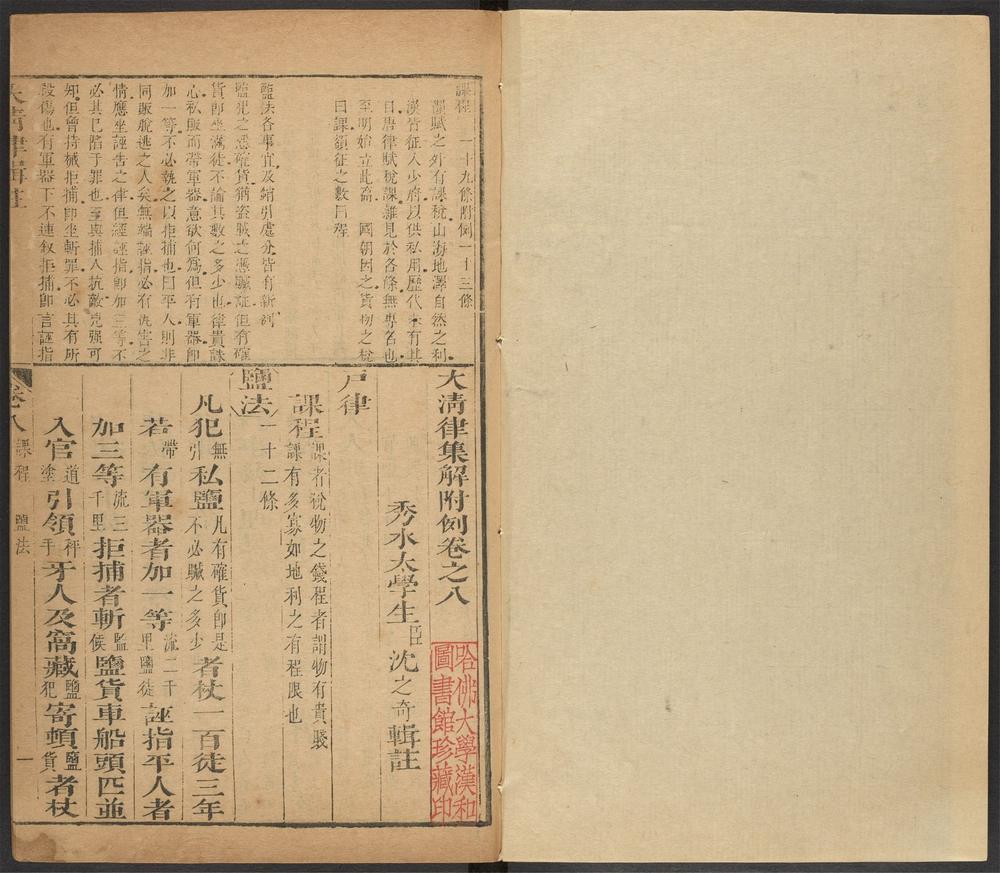 課程 一十九條附例一十三條
賦之外有課稅山海地澤自然之利
漢皆征入少府以供私用歷代來有其
目唐律賦稅課雜見於各條無專名也
至明始立此篇 國朝因之貨物之稅
曰課額征之數曰程
鹽法各事宜及銷引處分皆有新例
鹽犯之憑確貨猶盜賊之憑贓証但有確
貨卽坐滿徒不論其數之多少也律貴誅
心私販而帶軍器意欲何為但有軍器卽
加一等不必執之以拒捕也曰平人則非
同販脫逃之人矣無端誣指必有仇害之
情應坐誣告之律但經誣指卽加三等不
必其已陷于罪也至與捕人抗敵兇强可
知但會持械拒捕卽坐斬罪不必具有所
殺傷也有軍器下不連敘拒捕卽言誣指
大清律集解附例卷之八
秀水太學生臣沈之奇輯註
戶律
課程課者稅物之錢程者謂物有貴賤課有多寡如地利之有程限也
鹽法一十二條
凡犯無引私鹽凡有確貨卽是不必贓之多少者杖一百徒三年
若帶有軍器者加一等流二千里鹽徒誣指平人者
加三等流三千里拒捕者斬監候鹽貨車船頭匹並
入官道塗引領秤手牙人及窩藏鹽犯寄頓鹽貨者杖
大清律輯註
卷八 課程 鹽法 一
哈佛大學漢和
圖書館珍藏印